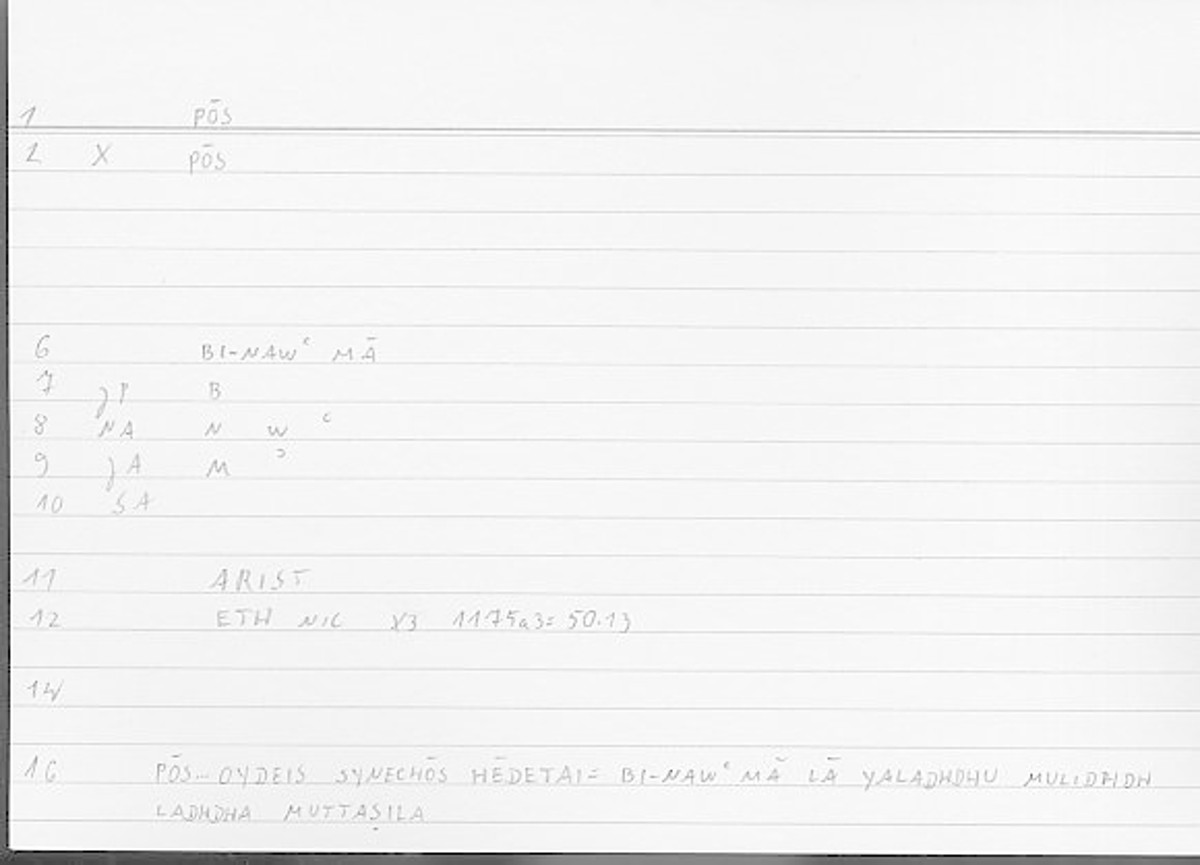 1 PŌS
2 X PŌS
6 BI-NAWʿ MĀ
7 jP B
8 NA N W ʿ
9 jA M ʾ
10 SA
11 ARIST
12 ETH NIC X3 1175a3= 50.13
14
16 PŌS... OYDEIS SYNECHŌS HĒDETAI= BI-NAWʿ MĀ LĀ YALADHDHU
LADHDHA MUTTAṢILA